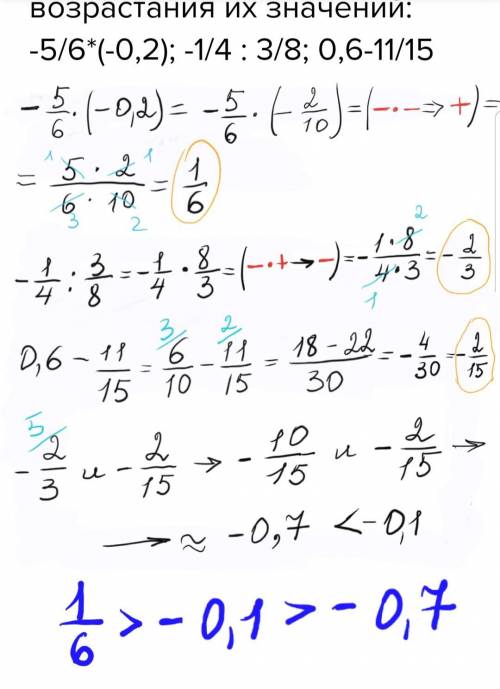 возрастания их значений:
-5/6*(-0,2); -1/4 : 3/8; 0,6-11/15
- 5/6 · (-0,2) = - 5/6 · (- 2/10) = (- · - ⇒ +) =
= 5 · 2 / 6 · 10 = 1/6
1 1
3 2
- 1/4 : 3/8 = - 1/4 · 8/3 = (- · + → -) = - 1·8/4·3 = - 2/3
2
1
0,6 - 11/15 = 3/ 6/10 - 2/ 11/15 = 18 - 22/30 = - 4/30 = - 2/15
5/
- 2/3 и - 2/15 → - 10/15 и - 2/15 →
→ ≈ -0,7 < -0,1
1/6 > - 0,1 > - 0,7